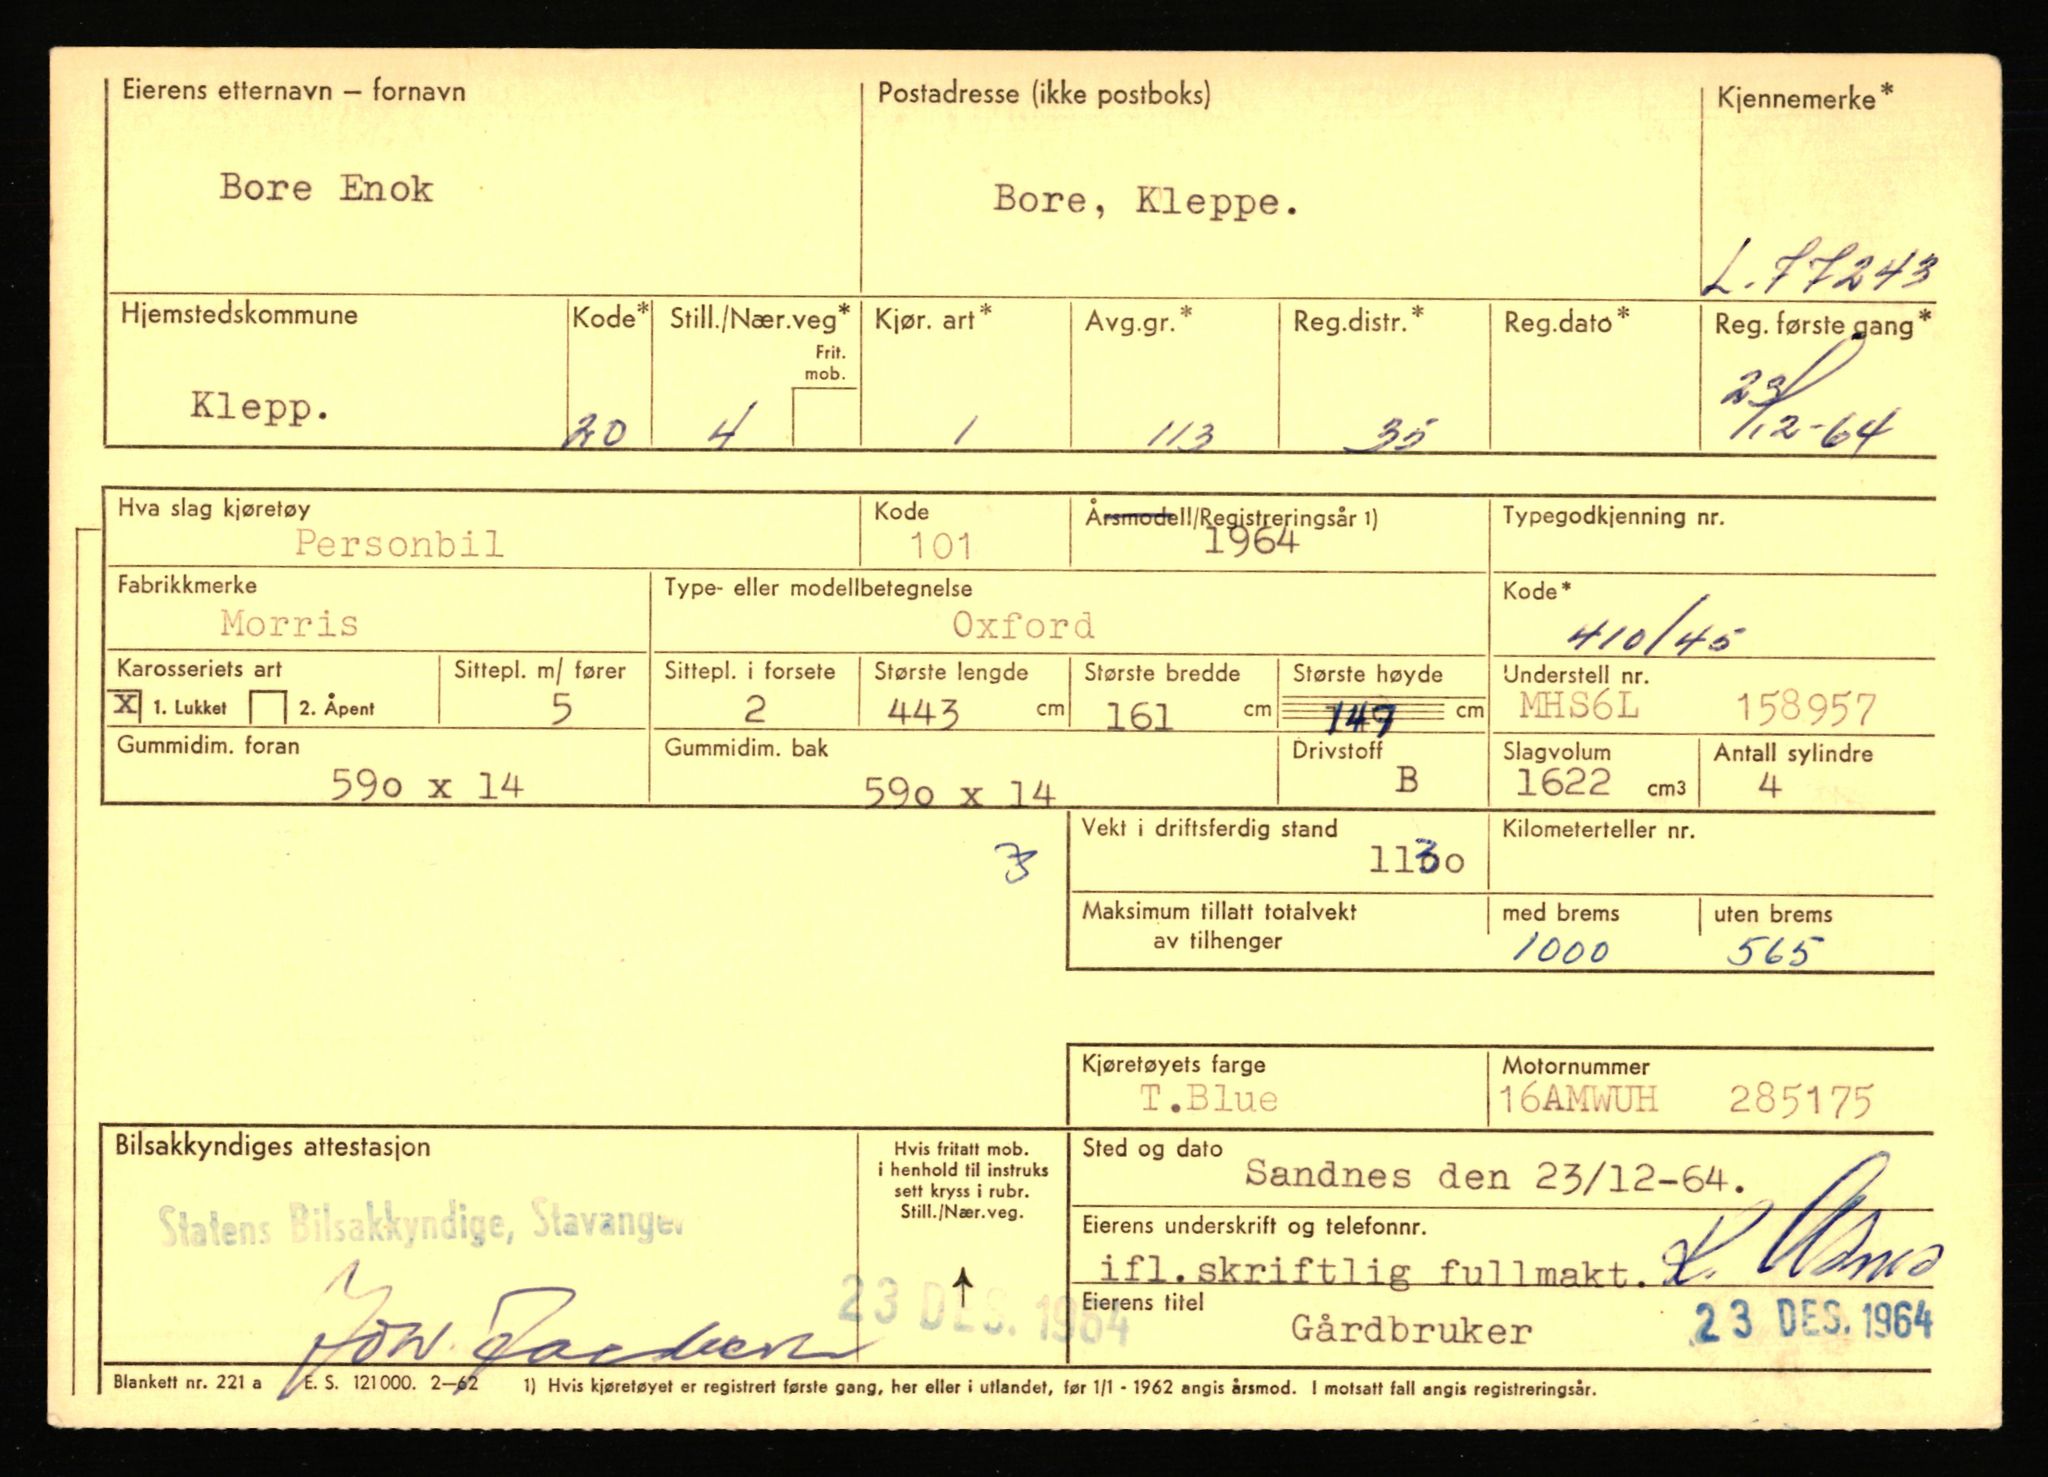 Eierens etternavn – fornavn
Postadresse (ikke postboks)
Kjennemerke*
Bore Enok
Bore, Kleppe.
L.77243
Hjemstedskommune
Kode*
Still./Nær.veg*
Frit.
mob.
Kjør. art*
Avg.gr.*
Reg.distr.*
Reg.dato*
Reg. første gang*
Klepp.
20
4
1
113
35
23/12-64
Hva slag kjøretøy
Kode
Årsmodell/Registreringsår 1)
Typegodkjenning nr.
Personbil
101
1964
Fabrikkmerke
Type- eller modellbetegnelse
Kode*
Morris
Oxford
410/45
Karosseriets art
Sittepl. m/ fører
Sittepl. i forsete
Største lengde
Største bredde
Største høyde
Understell nr.
X 1. Lukket 2. Åpent
5
2
443 cm
161 cm
149 cm
MHS6L 158957
Gummidim. foran
Gummidim. bak
Drivstoff
Slagvolum
Antall sylindre
590 x 14
590 x 14
B
1622 cm3
4
Vekt i driftsferdig stand
Kilometerteller nr.
1130
Maksimum tillatt totalvekt
av tilhenger
med brems
uten brems
1000
565
Kjøretøyets farge
Motornummer
T.Blue
16AMWUH 285175
Bilsakkyndiges attestasjon
Hvis fritatt mob.
i henhold til instruks
sett kryss i rubr.
Still./Nær.veg.
Sted og dato
Sandnes den 23/12-64.
Statens Bilsakkyndige, Stavanger
Eierens underskrift og telefonnr.
ifl.skriftlig fullmakt.
23 DES. 1964
Eierens titel
Gårdbruker
23 DES. 1964
Blankett nr. 221 a E. S. 121000. 2–62 1) Hvis kjøretøyet er registrert første gang, her eller i utlandet, før 1/1 - 1962 angis årsmod. I motsatt fall angis registreringsår.